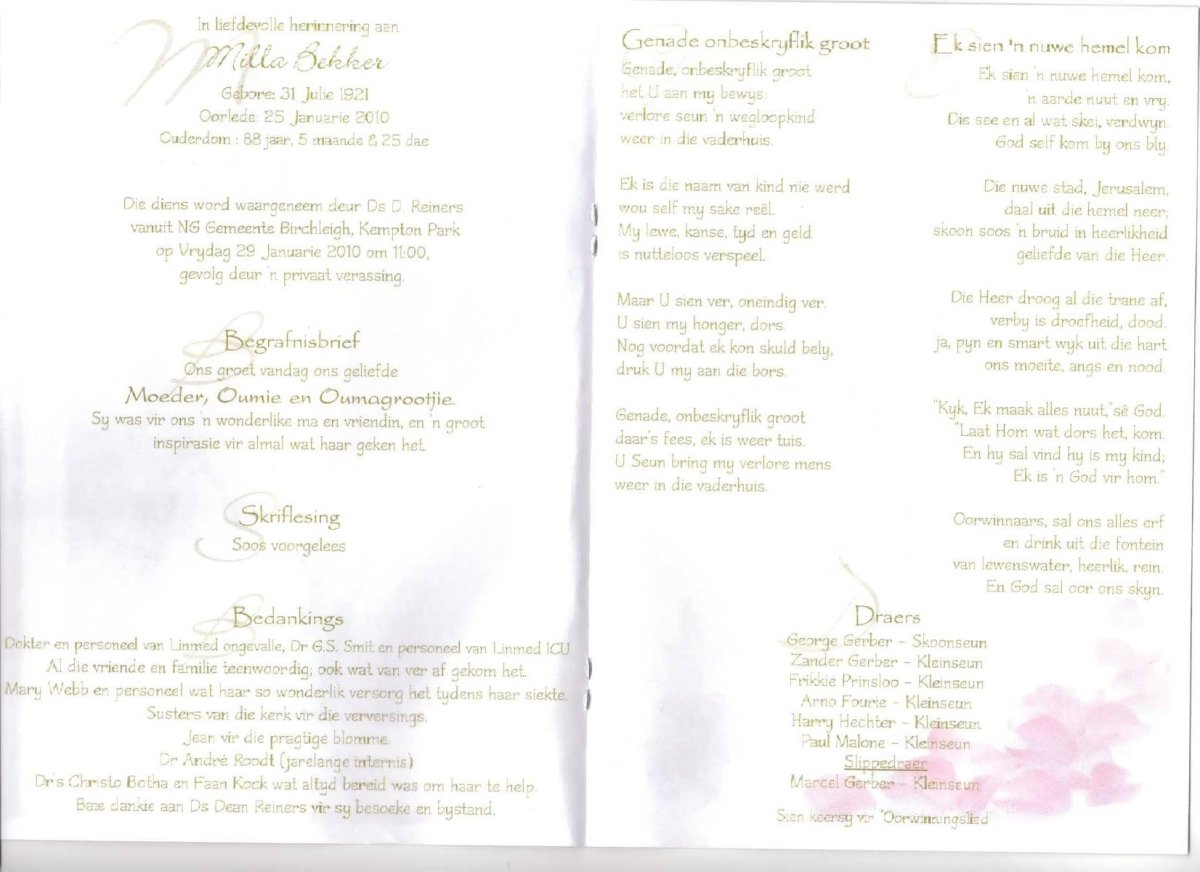 In liefdevolle herinnering aan
Milla Bekker
Gebore: 31 Julie 1921
Oorlede: 25 Januarie 2010
Ouderdom : 88 jaar, 5 maande & 25 dae
Die diens word waargeneem deur Ds D. Reiners
vanuit NG Gemeente Birchleigh, Kempton Park
op Vrydag 29 Januarie 2010 om 11:00,
gevolg deur 'n privaat verassing.
Begrafnisbrief
Ons groet vandag ons geliefde
Moeder, Oumie en Oumagrootjie.
Sy was vir ons 'n wonderlike ma en vriendin, en 'n groot
inspirasie vir almal wat haar geken het.
Skriflesing
Soos voorgelees
Bedankings
Dokter en personeel van Linmed ongevalle, Dr G.S. Smit en personeel van Linmed ICU
Al die vriende en familie teenwoordig; ook wat van ver af gekom het.
Mary Webb en personeel wat haar so wonderlik versorg het tydens haar siekte.
Susters van die kerk vir die verversings.
Jean vir die pragtige blomme.
Dr André Roodt (jarelange internis)
Dr's Christo Botha en Faan Kock wat altyd bereid was om haar te help.
Baie dankie aan Ds Dean Reiners vir sy besoeke en bystand.
Genade onbeskryflik groot
Genade, onbeskryflik groot
het U aan my bewys:
verlore seun 'n wegloopkind
weer in die vaderhuis.
Ek is die naam van kind nie werd
wou self my sake reël.
My lewe, kanse, tyd en geld
is nutteloos verspeel.
Maar U sien ver, oneindig ver.
U sien my honger, dors.
Nog voordat ek kon skuld bely,
druk U my aan die bors.
Genade, onbeskryflik groot
daar's fees, ek is weer tuis.
U Seun bring my verlore mens
weer in die vaderhuis.
Ek sien 'n nuwe hemel kom
Ek sien 'n nuwe hemel kom,
'n aarde nuut en vry.
Die see en al wat skei, verdwyn.
God self kom by ons bly.
Die nuwe stad, Jerusalem,
daal uit die hemel neer;
skoon soos 'n bruid in heerlikheid
geliefde van die Heer.
Die Heer droog al die trane af,
verby is droefheid, dood.
ja, pyn en smart wyk uit die hart
ons moeite, angs en nood.
"Kyk, Ek maak alles nuut,"sê God.
"Laat Hom wat dors het, kom.
En hy sal vind hy is my kind;
Ek is 'n God vir hom."
Oorwinnaars, sal ons alles erf
en drink uit die fontein
van lewenswater, heerlik, rein.
En God sal oor ons skyn.
Draers
George Gerber – Skoonseun
Zander Gerber – Kleinseun
Frikkie Prinsloo – Kleinseun
Arno Fourie – Kleinseun
Harry Hechter – Kleinseun
Paul Malone – Kleinseun
Slippedraer
Marcel Gerber – Kleinseun
Sien keersy vir "Oorwinningslied"